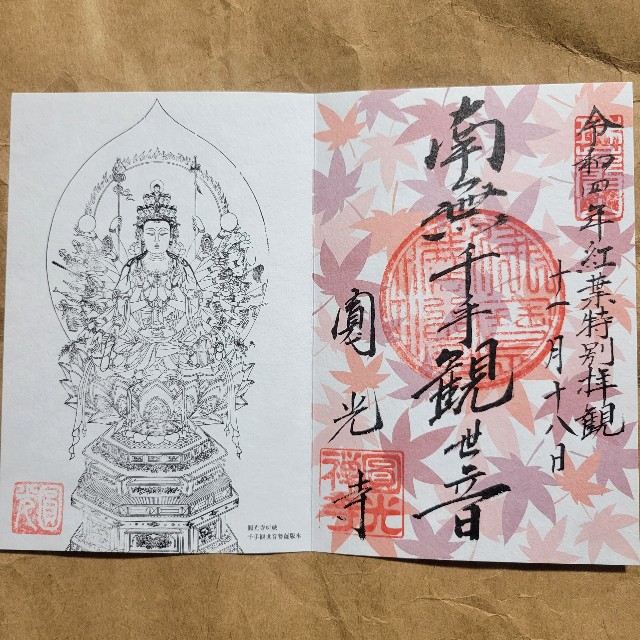 令和四年紅葉特別拝観
十一月十八日
南無千手観世音
圓光寺
圓光禅寺
圓光寺所蔵
千手観世音菩薩版木